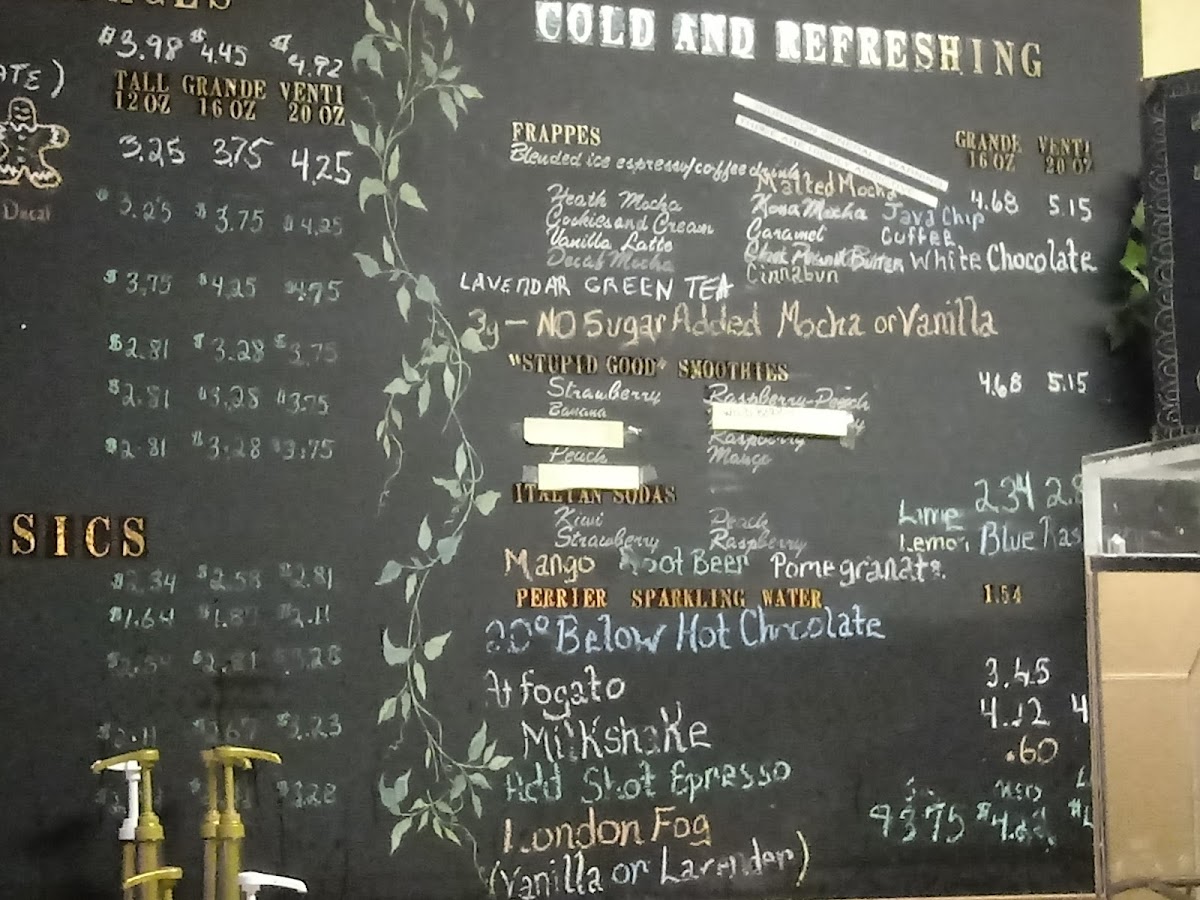 $3.98 $4.45 $4.92
TALL GRANDE VENTI
12 OZ 16 OZ 20 OZ
3.25 3.75 4.25
Decaf
$3.25 $3.75 $4.25
$3.75 $4.25 $4.75
$2.81 $3.28 $3.75
$2.81 $3.28 $3.75
$2.81 $3.28 $3.75
SICS
$2.34 $2.58 $2.81
$1.64 $2.11
COLD AND REFRESHING
FRAPPES
GRANDE VENTI
16 OZ 20 OZ
Blended ice espresso/coffee drinks
4.68 5.15
Heath Mocha Malted Mocha
Cookies and Cream Kona Mocha Java Chip
Vanilla Latte Caramel Coffee
Decaf Mocha Peanut Butter White Chocolate
Cinnabun
LAVENDAR GREEN TEA
3g - NO Sugar Added Mocha or Vanilla
"STUPID GOOD" SMOOTHIES
4.68 5.15
Strawberry Raspberry-Peach
Banana
Raspberry
Peach Mango
ITALIAN SODAS
2.34
Kiwi Peach Lime
Strawberry Raspberry Lemon Blue Ras
Mango Root Beer Pomegranate
PERRIER SPARKLING WATER 1.54
20° Below Hot Chocolate
Affogato 3.45
Milkshake 4.12 4
Add Shot Epresso .60
London Fog $3.75
(Vanilla or Lavender)